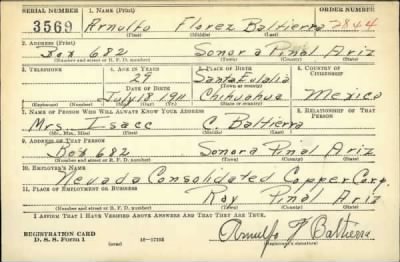 SERIAL NUMBER 1. NAME (Print) ORDER NUMBER
3569 Arnulfo Florez Baltierra 2844
(First) (Middle) (Last)
2. ADDRESS (Print)
Box 682 Sonora Pinal Ariz
(Number and street or R. F. D. number) (Town) (County) (State)
3. TELEPHONE 4. AGE IN YEARS 5. PLACE OF BIRTH 6. COUNTRY OF CITIZENSHIP
29 Santa Eulalia
DATE OF BIRTH (Town or county)
July 18 1911 Chihuahua Mexico
(Exchange) (Number) (Mo.) (Day) (Yr.) (State or country)
7. NAME OF PERSON WHO WILL ALWAYS KNOW YOUR ADDRESS 8. RELATIONSHIP OF THAT PERSON
Mrs. Isacc C. Baltierra
(Mr., Mrs., Miss) (First) (Middle) (Last)
9. ADDRESS OF THAT PERSON
Box 682 Sonora Pinal Ariz
(Number and street or R. F. D. number) (Town) (County) (State)
10. EMPLOYER'S NAME
Nevada Consolidated Copper Corp.
11. PLACE OF EMPLOYMENT OR BUSINESS
Ray Pinal Ariz
(Number and street or R. F. D. number) (Town) (County) (State)
I AFFIRM THAT I HAVE VERIFIED ABOVE ANSWERS AND THAT THEY ARE TRUE.
REGISTRATION CARD
D. S. S. Form 1 16—17105 Arnulfo F Baltierra
(Registrant's signature)